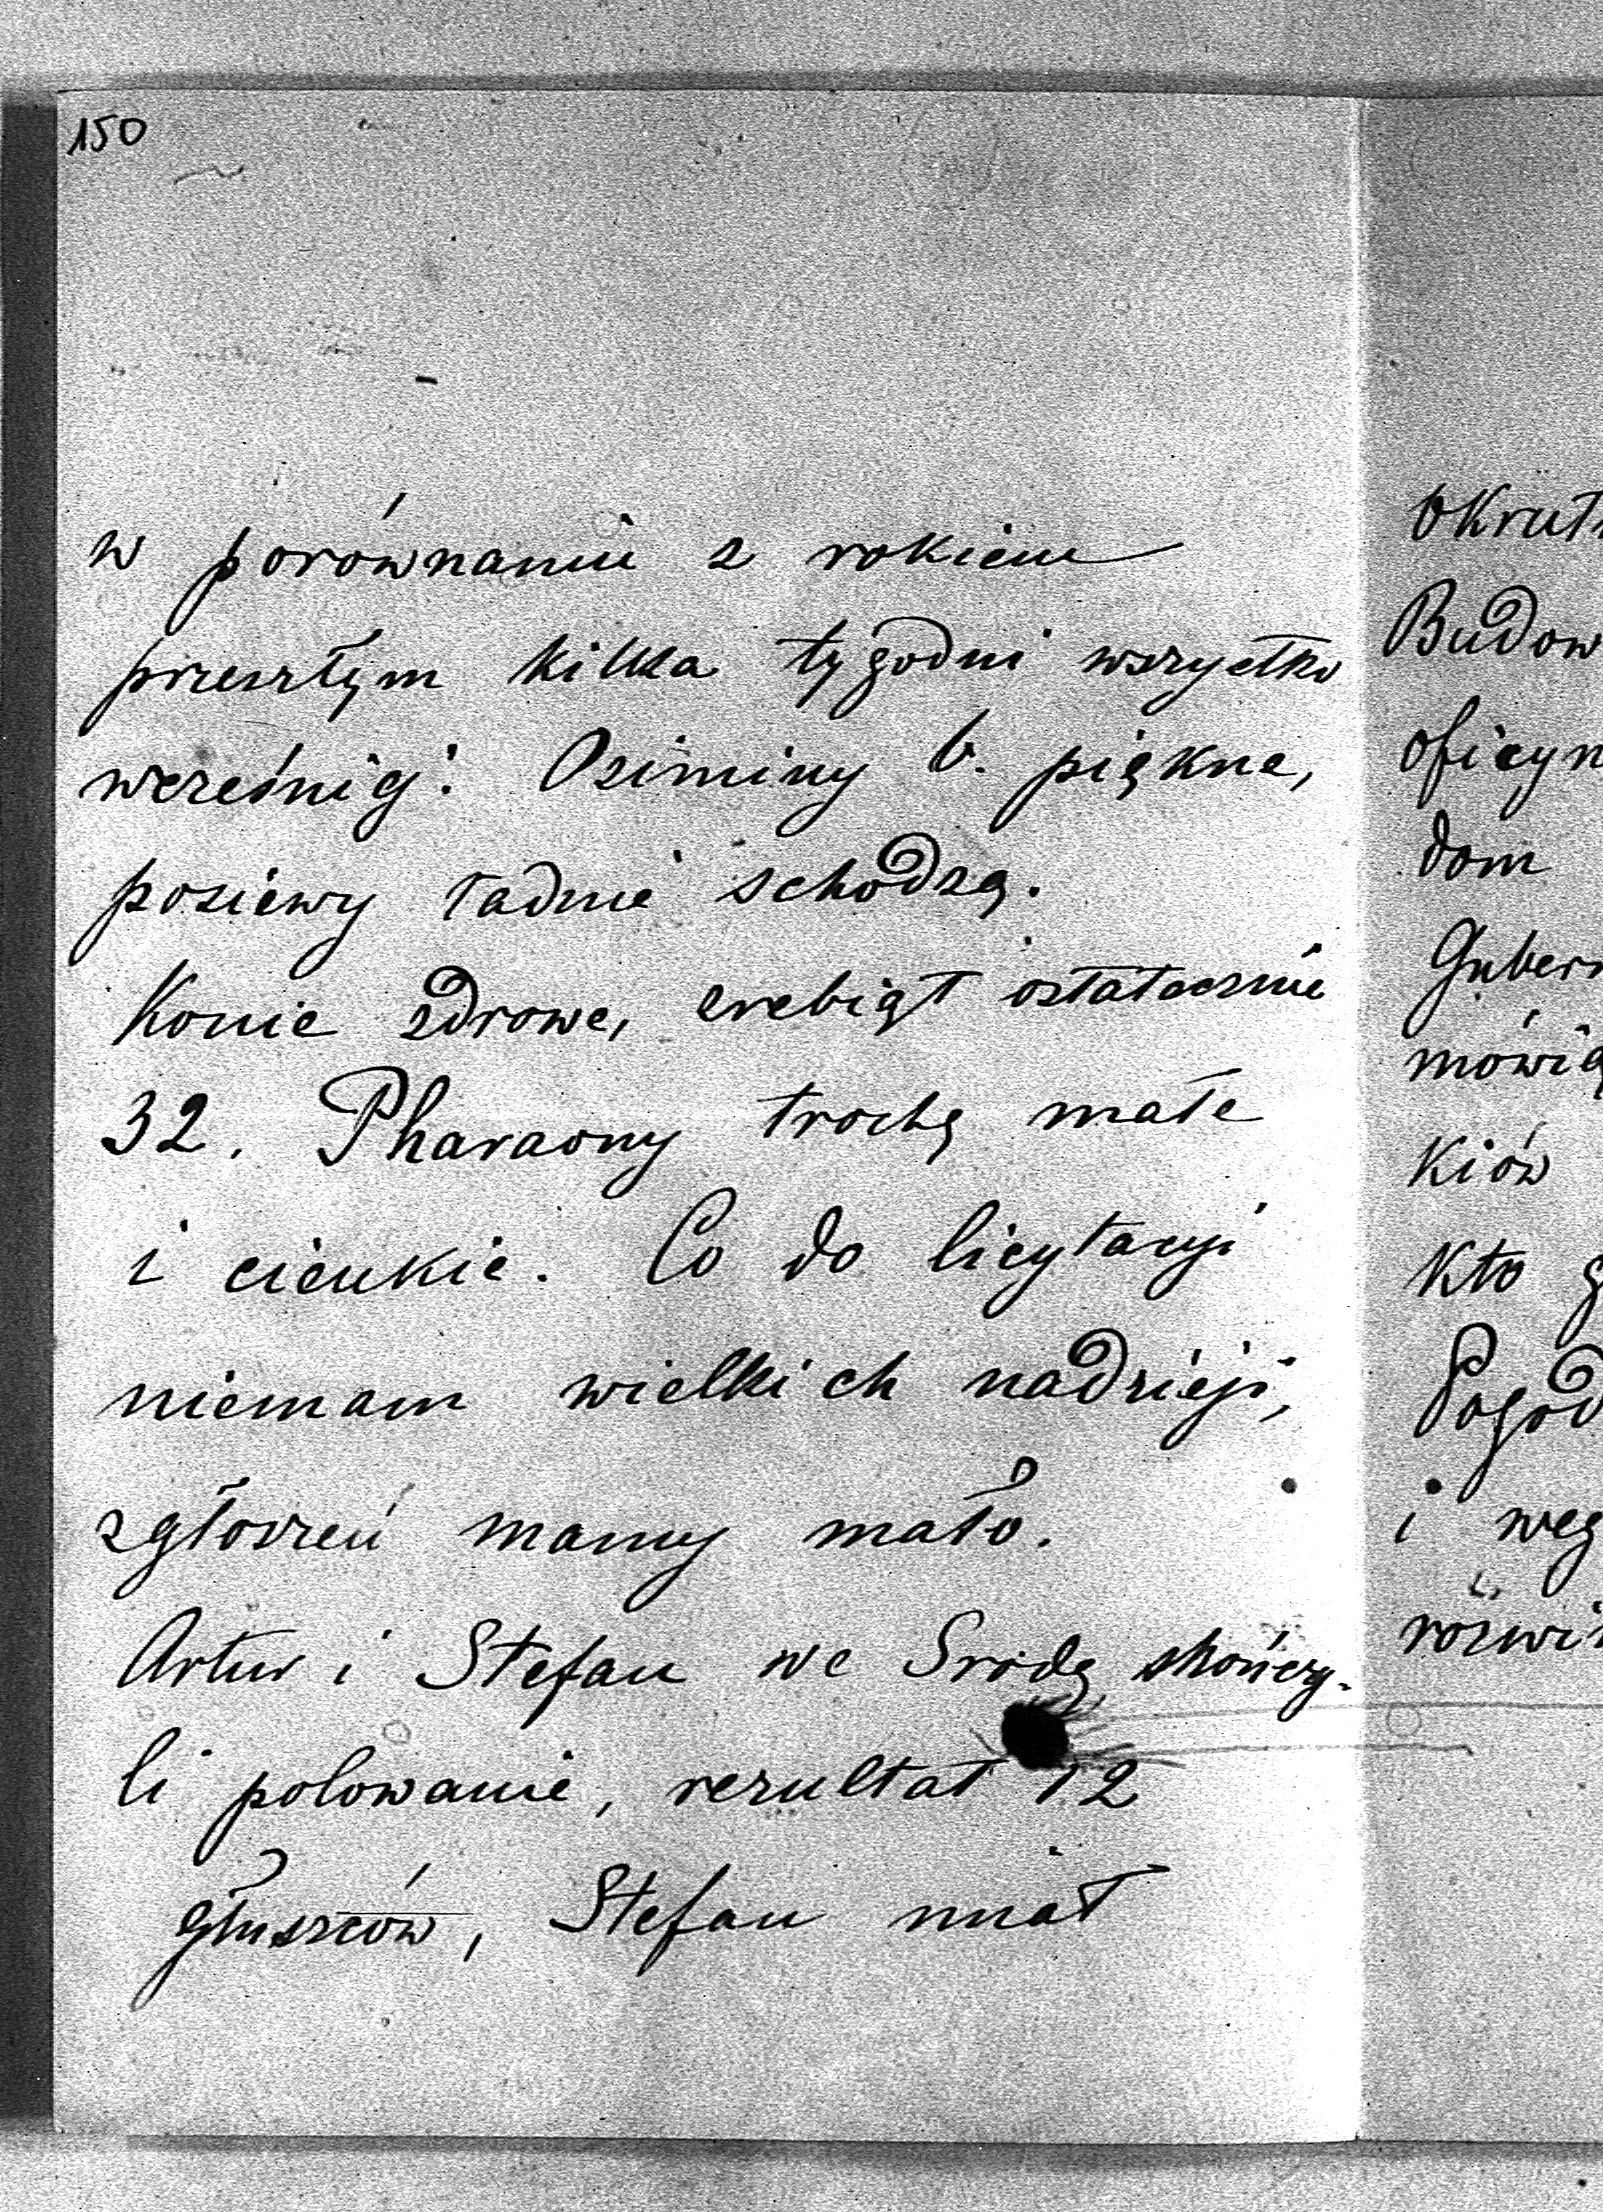 150
w porównaniu z rokiem
przeszłym kilka tygodni wszystko
wcześniej. Oziminy b. piękne,
posiewy ładnie schodzą.
Konie zdrowe, źrebiąt ostatecznie
32. Pharaony trochę małe
i cienkie. Co do licytacyi
niemam wielkich nadzieji,
zgłoszeń mamy mało.
Artur i Stefan we Srodę skończy-
li polowanie, rezultat 12
głuszców, Stefan miał
okrutn
Budow
oficyn
dom
Gubern
mówią
kiów
kto g
Pogod
i weg
rozwi